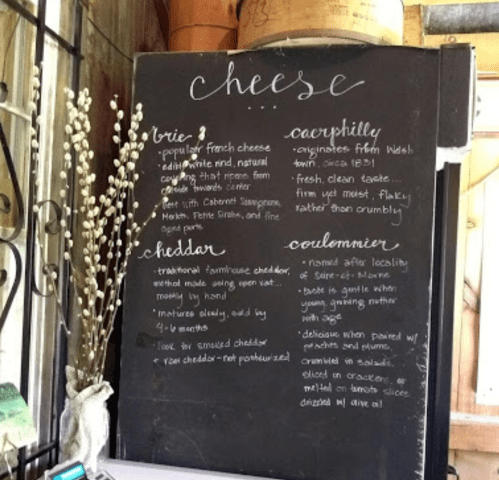 cheese
brie
• popular french cheese
• edible white rind, natural
covering that ripens from
outside towards center
• best with Cabernet Sauvignon,
Merlot, Petite Sirahs, and fine
aged ports
cheddar
• traditional farmhouse cheddar,
method made using open vat...
mostly by hand
• matures slowly, sold by
4-6 months
• look for smoked cheddar
+ raw cheddar - not pasteurized
caerphilly
• originates from Welsh
town, circa 1831
• fresh, clean taste...
firm yet moist, flaky
rather than crumbly
coulommier
• named after locality
of Seine-et-Marne
• taste is gentle when
young, growing nuttier
with age
• delicious when paired w/
peaches and plums,
crumbled in salads,
sliced on crackers, or
melted on tomato slices
drizzled w/ olive oil